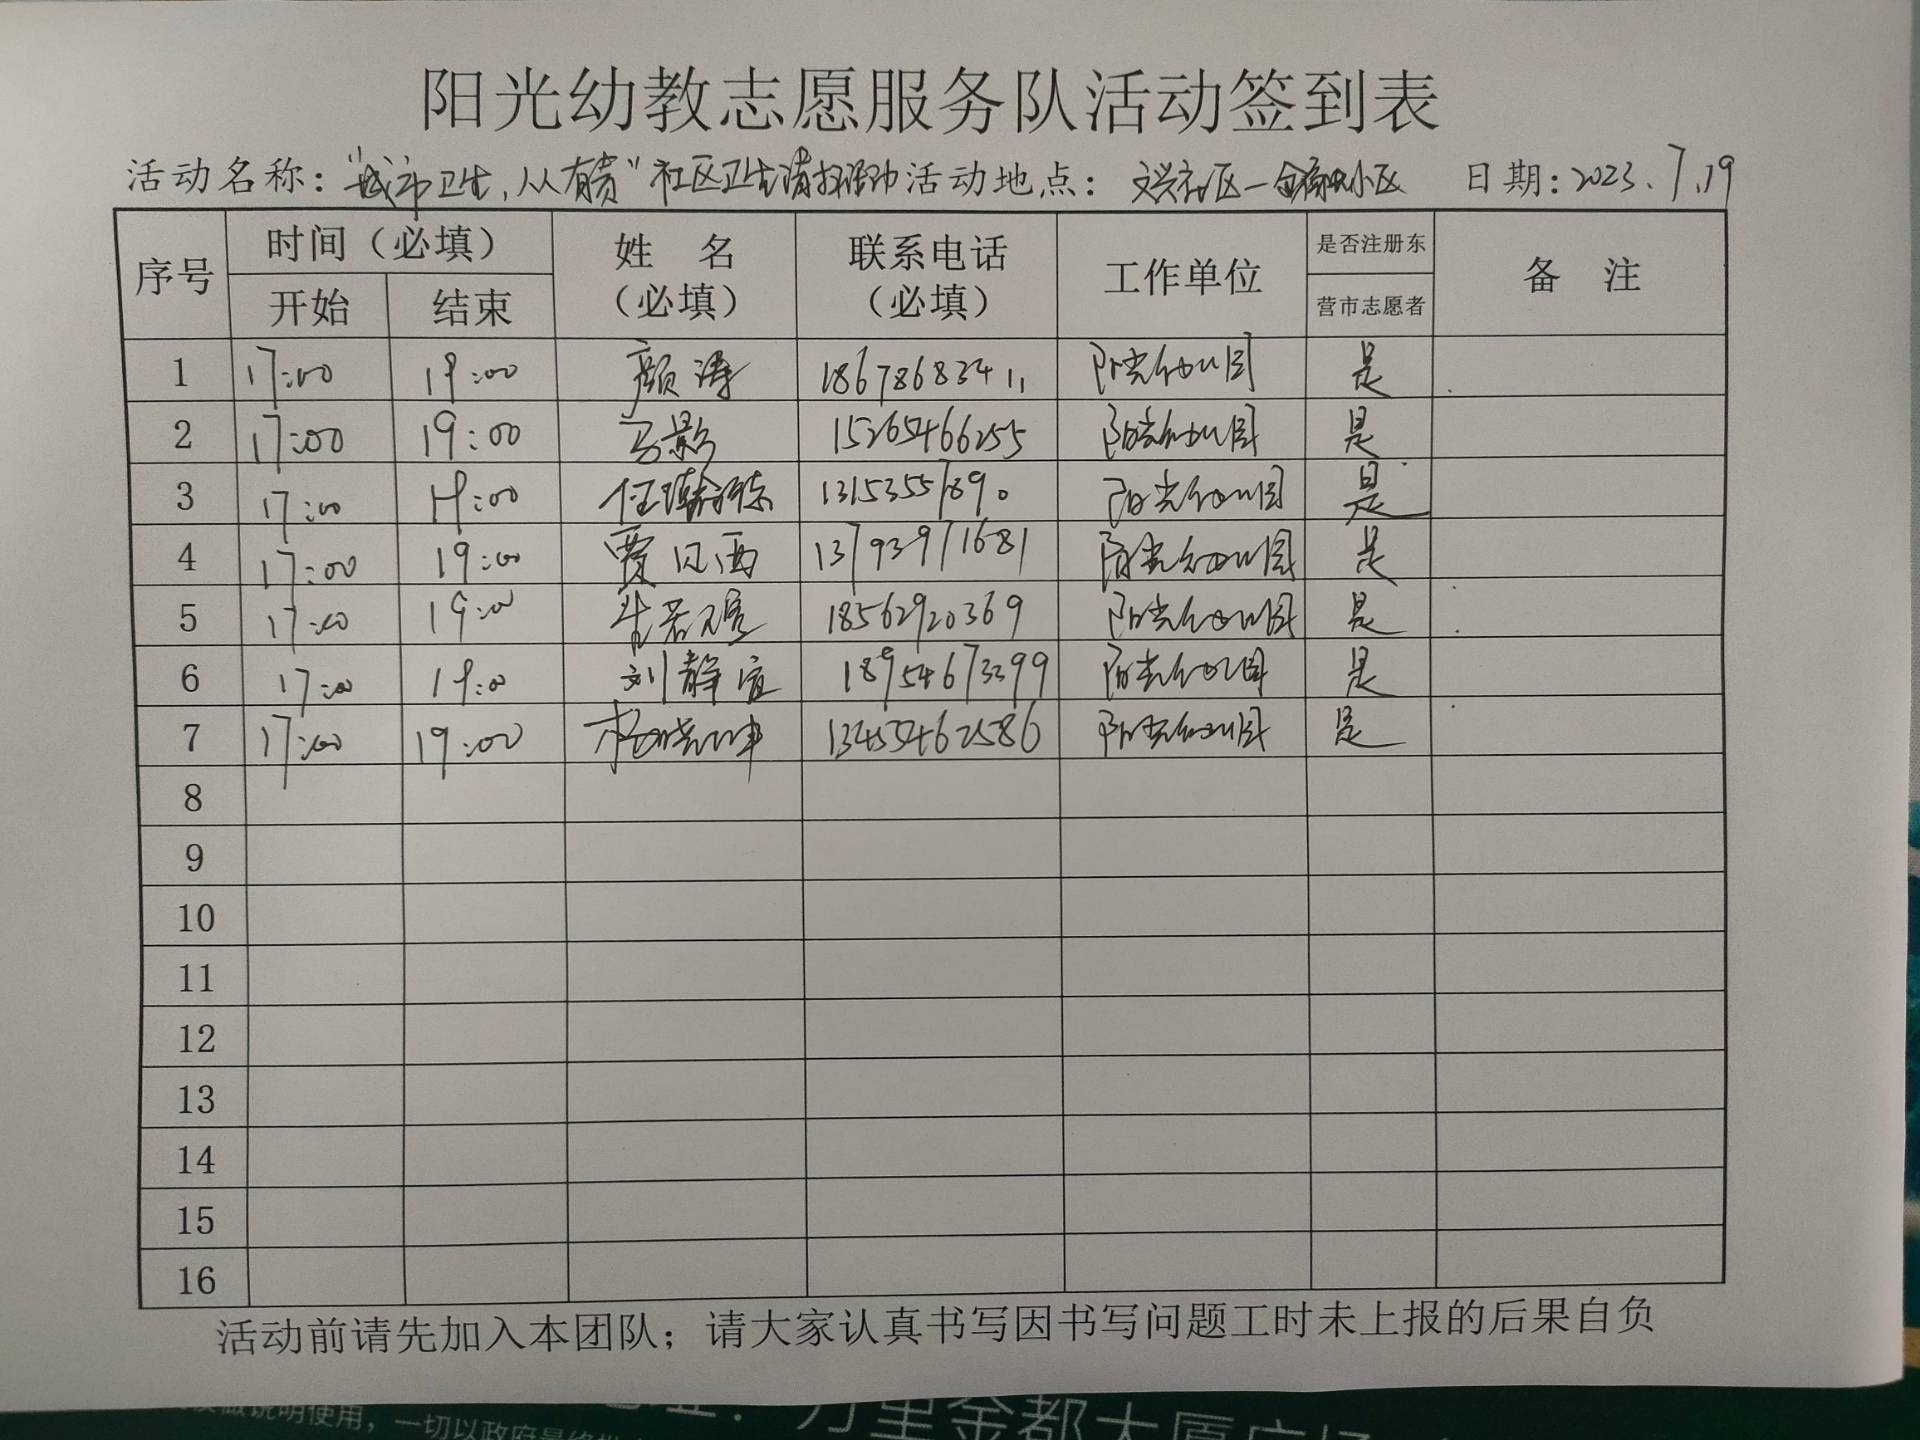 阳光幼教志愿服务队活动签到表
活动名称：“城市卫生，人人有责”社区卫生清扫活动 活动地点：文兴社区一 小区 日期：2023.7.19
序号 时间（必填） 姓 名（必填） 联系电话（必填） 工作单位 是否注册东营市志愿者 备 注
开始 结束
1 17:00 19:00 颜涛 18678683411 阳光幼儿园 是
2 17:00 19:00 马影 15265466255 阳光幼儿园 是
3 17:00 19:00 任 13153557890 阳光幼儿园 是
4 17:00 19:00 贾 西 13793971681 阳光幼儿园 是
5 17:00 19:00 18562920369 阳光幼儿园 是
6 17:00 19:00 刘静宜 18954673399 阳光幼儿园 是
7 17:00 19:00 杨晓 13455462586 阳光幼儿园 是
8
9
10
11
12
13
14
15
16
活动前请先加入本团队；请大家认真书写因书写问题工时未上报的后果自负
说明使用，一切以政府最终
万里金都大厦广场